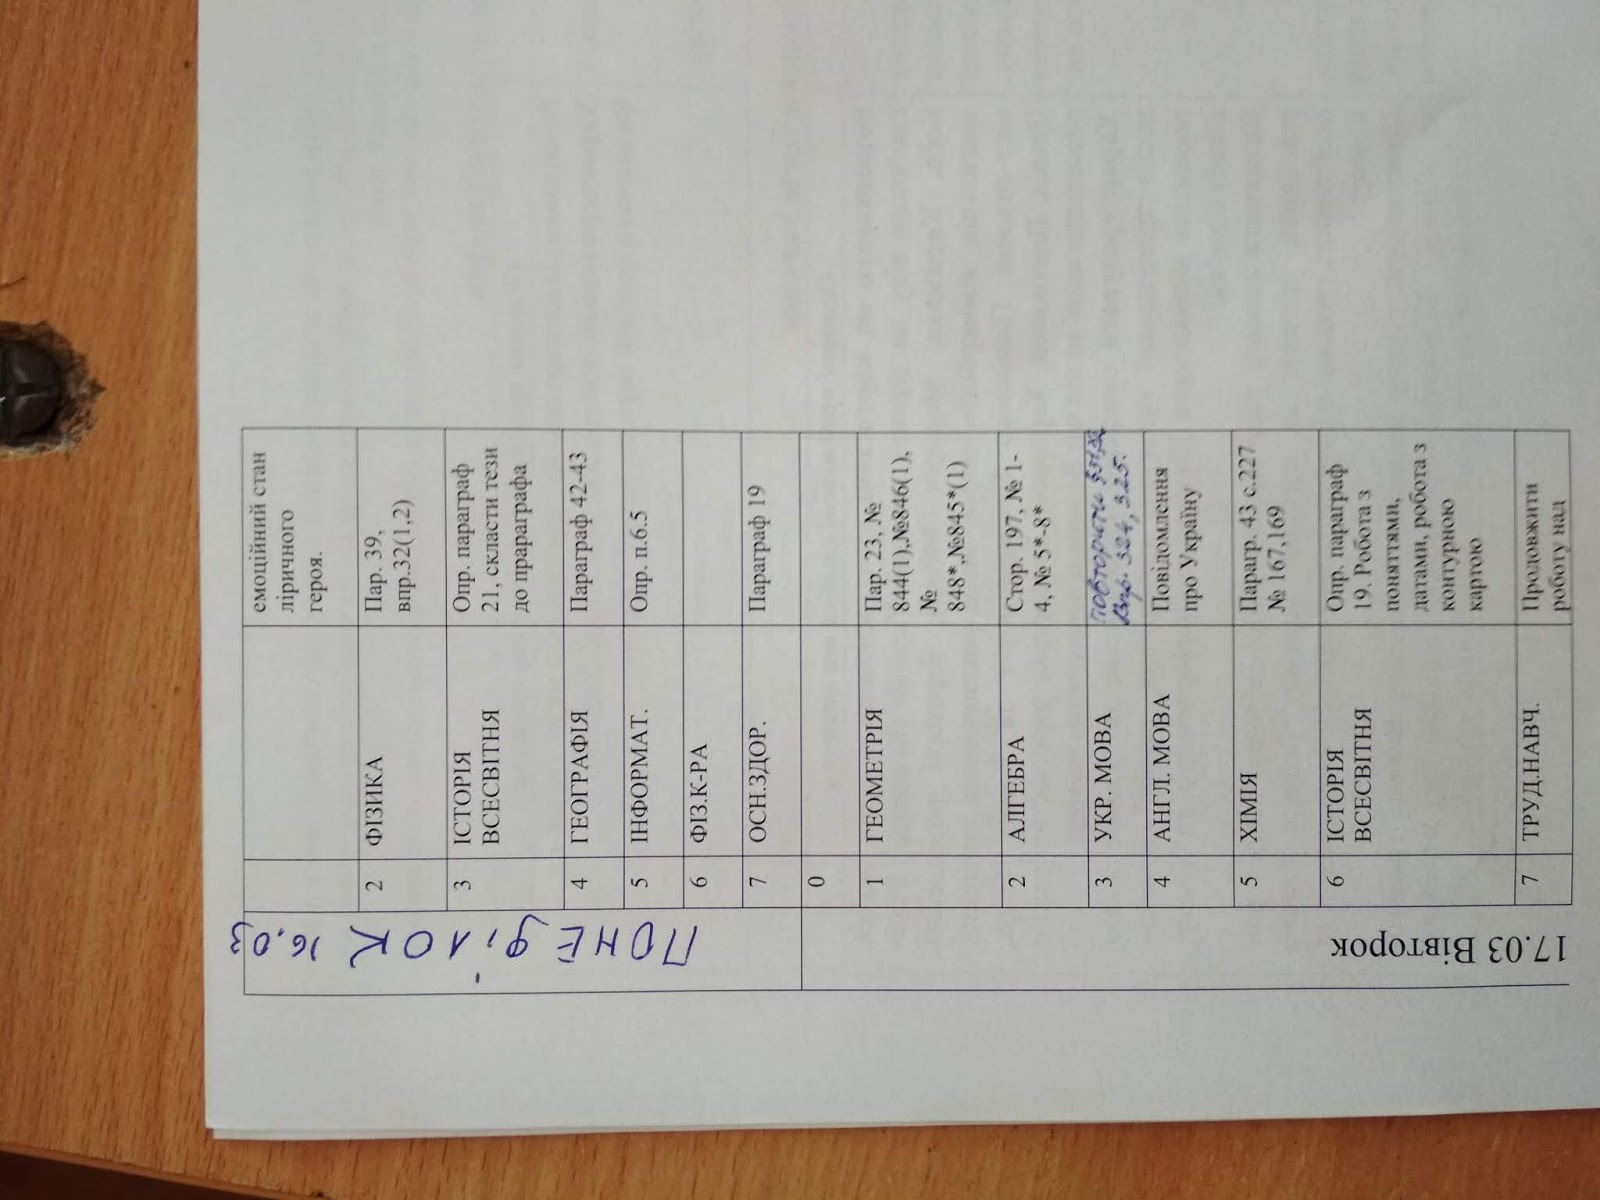 ПОНЕДІЛОК 16.03
емоційний стан
ліричного
героя.
2 ФІЗИКА Пар. 39,
впр.32(1,2)
3 ІСТОРІЯ ВСЕСВІТНЯ Опр. параграф
21, скласти тези
до прараграфа
4 ГЕОГРАФІЯ Параграф 42-43
5 ІНФОРМАТ. Опр. п.6.5
6 ФІЗ.К-РА
7 ОСН.ЗДОР. Параграф 19
17.03 Вівторок
0
1 ГЕОМЕТРІЯ Пар. 23, №
844(1),№846(1),
№
848*,№845*(1)
2 АЛГЕБРА Стор. 197, № 1-
4, № 5*-8*
3 УКР. МОВА повторити
Впр. 324, 325.
4 АНГЛ. МОВА Повідомлення
про Україну
5 ХІМІЯ Парагр. 43 с.227
№ 167,169
6 ІСТОРІЯ ВСЕСВІТНЯ Опр. параграф
19. Робота з
поняттями,
датами, робота з
контурною
картою
7 ТРУД.НАВЧ. Продовжити
роботу над